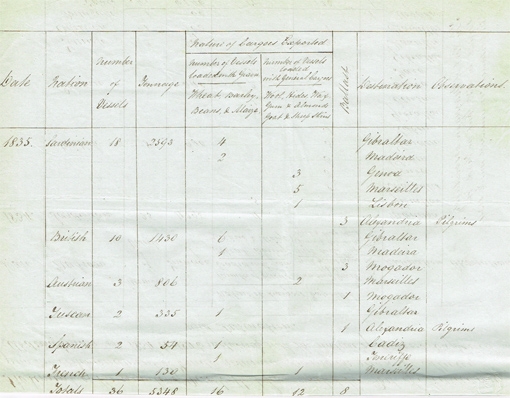 Nature of Cargoes Exported
Date Nation Number of Vessels Tonnage Number of Vessels loaded with Grain Number of Vessels loaded with General Cargoes Ballast Destination Observations
Wheat, Barley, Beans, & Maize Wool, Hides, Wax, Gum & Almonds Goat & Sheep Skins
1835. Sardinian 18 2393 4 Gibraltar
2 Madeira
3 Genoa
5 Marseilles
1 Lisbon
3 Alexandria Pilgrims
British 10 1430 6 Gibraltar
1 Madeira
3 Mogador
Austrian 3 806 2 Marseilles
1 Mogador
Tuscan 2 335 1 Gibraltar
1 Alexandria Pilgrims
Spanish 2 54 1 Cadiz
1 Teneriffe
French 1 130 1 Marseilles
Totals 36 5348 16 12 8